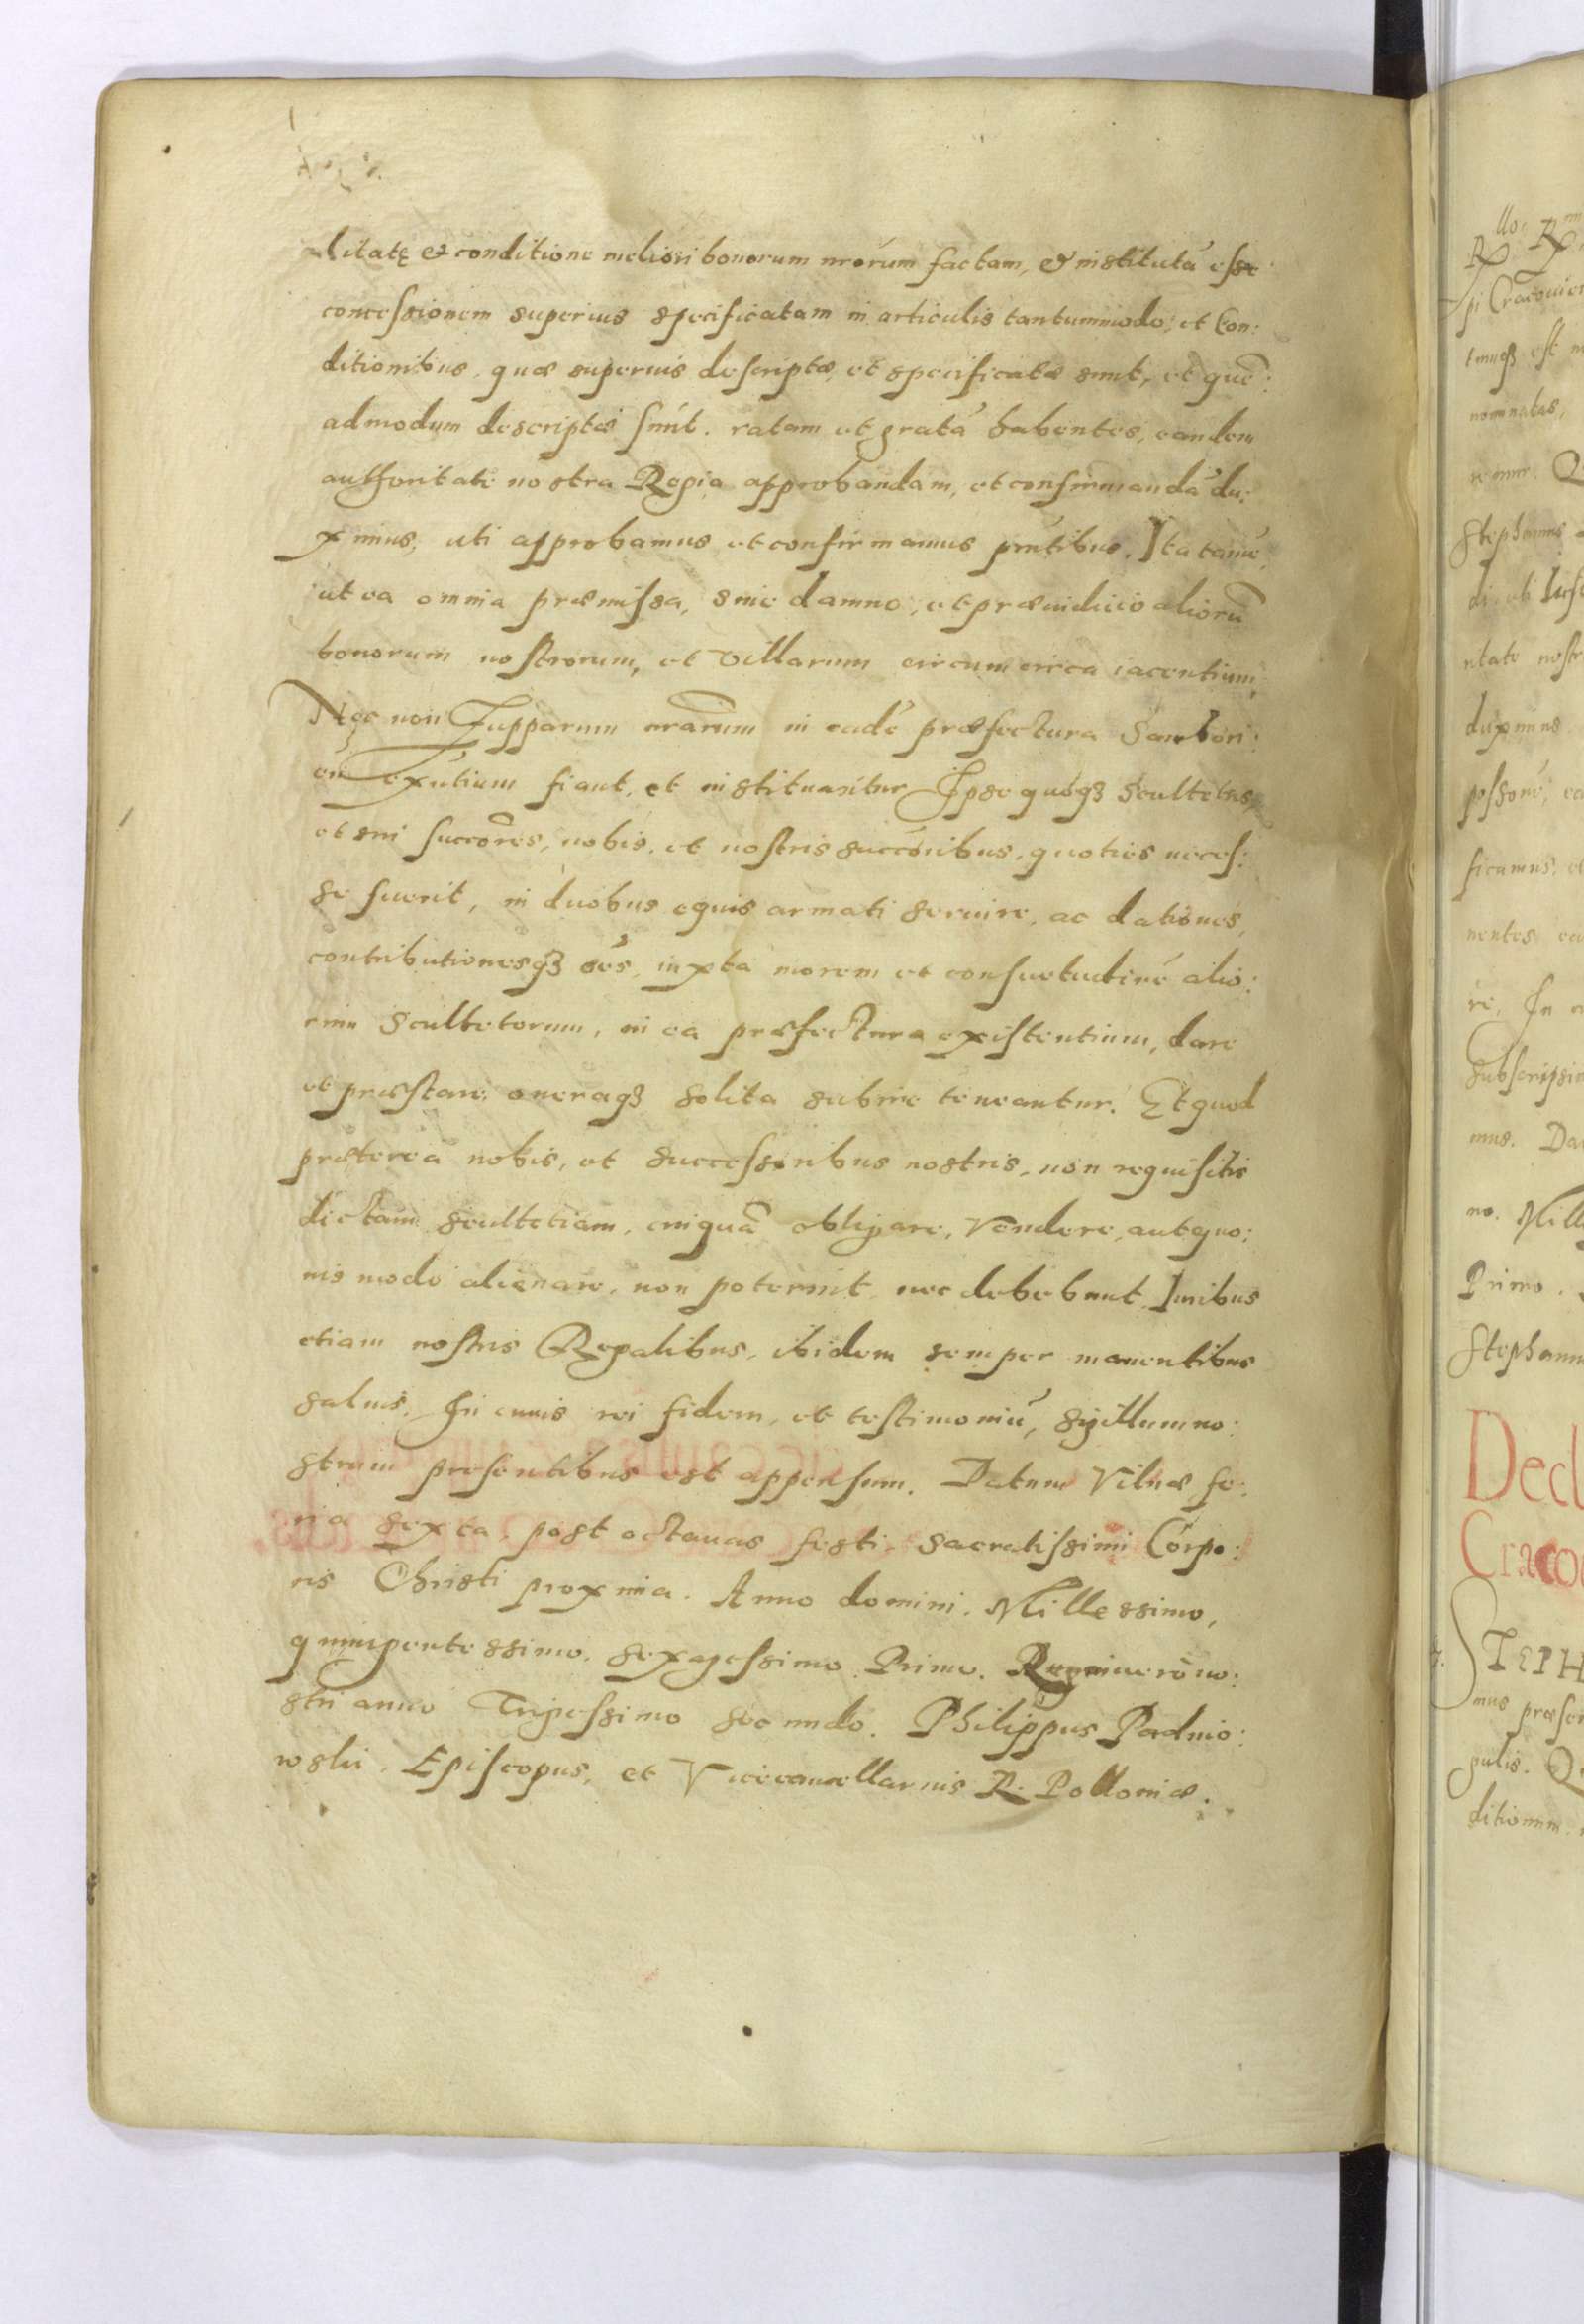 litatę et conditione meliori bonorum nrorum factam, et institutā esse
concessionem superius specificatam in articulis tantummodo, et Con:
ditionibus, quæ superius descriptæ, et specificatæ sunt, et quē:
admodum descriptæ sunt. ratam et gratā habentes, eandem
authoritate nostra Regia approbandam, et confirmandā du:
ximus, uti approbamus et confirmamus pntibus. Ita tamē,
ut ea omnia præmissa, sine damno, et præiudicio aliorū
bonorum nostrorum, et Villarum circumcirca iacentium,
Nec non Zupparum nrarum in eadē præfectura Sambori:
eñ exñtium fiant, et instituantur Ipse quoqȝ Scultetus,
et sui succōres, nobis, et nostris succōribus, quoties neces:
se fuerit, in duobus equis armati servire, ac dationes,
contributionesqȝ ōes, iuxta morem et consuetudinē alio:
rum Scultetorum, in ea præfectura existentium, dare
et præstare, oneraqȝ solita subire teneantur. Et quod
præterea nobis, et successoribus nostris, non requisitis
dictam scultetiam, cuiquā obligare, Vendere, aut quo:
uis modo alienare, non poterint, nec debebunt, Iuribus
etiam nostris Regalibus, ibidem semper manentibus
saluis. In cuius rei fidem, et testimoniū, sigillum no:
strum presentibus est appensum. Datum Vilnæ fe:
ria sexta, post octauas festi, sacratissimi Corpo:
ris Christi proxima. Anno domini, Millessimo,
quingentessimo, sexagessimo Primo. Regni vero no:
stri anno Trigessimo secundo. Philippus Padnio:
wski, Episcopus, et Vicecancellarius R. Polloniæ.
llo: R
pi Cracovien
nominatas,
Stephanus
ntate nostr
duximus
ficamus, et
nentes ea
re, In
Subscripsi
mus. Da
no. Mill
Primo.
Stephanu
Decl
Craco
STEPH
mus præsen
gulis. Q
ditionum